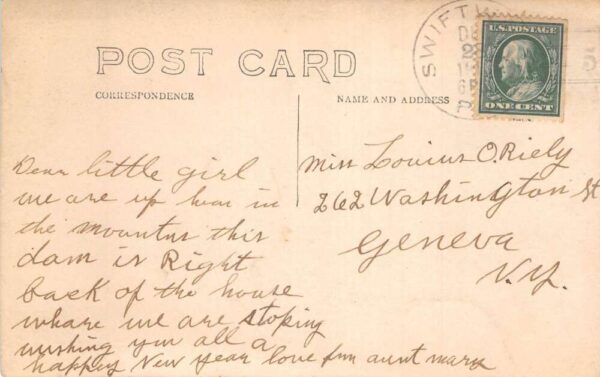 POST CARD
CORRESPONDENCE
NAME AND ADDRESS
SWIFT
U.S. POSTAGE
ONE CENT
Dear little girl
we are up hear in
the mountns this
dam is Right
back of the house
whare we are stoping
wishing you all a
happey New year love from aunt mary
Miss Louius O. Riely
262 Washington St
Geneva
N.Y.